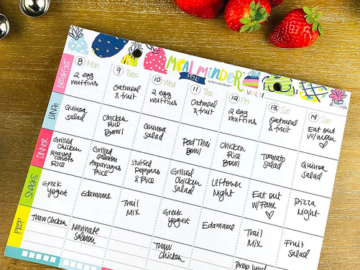 MEAL MINDER
8 Mon
9 Tues
10 Wed
11 Thu
12 Fri
13 Sat
14 Sun
BREAKFAST
2 egg muffins
Oatmeal & fruit
2 egg muffins
Oatmeal & fruit
2 egg muffins
Oatmeal & fruit
Eat out
LUNCH
Quinoa Salad
Chicken Rice Bowl
Quinoa Salad
Pad Thai Bowl
Chicken Rice Bowl
Tomato Salad
Quinoa Salad
DINNER
Grilled Chicken
Rice
Grilled Salmon
Asparagus
Rice
Stuffed Peppers & Rice
Grilled Chicken Salad
Leftover Night
Eat out w/Fam
Pizza Night
SNACKS
Greek Yogurt
Edamame
Trail Mix
Greek Yogurt
Edamame
Trail Mix
Fruit Salad
PREP
Thaw Chicken
Marinate Salmon
Thaw Chicken
Prep